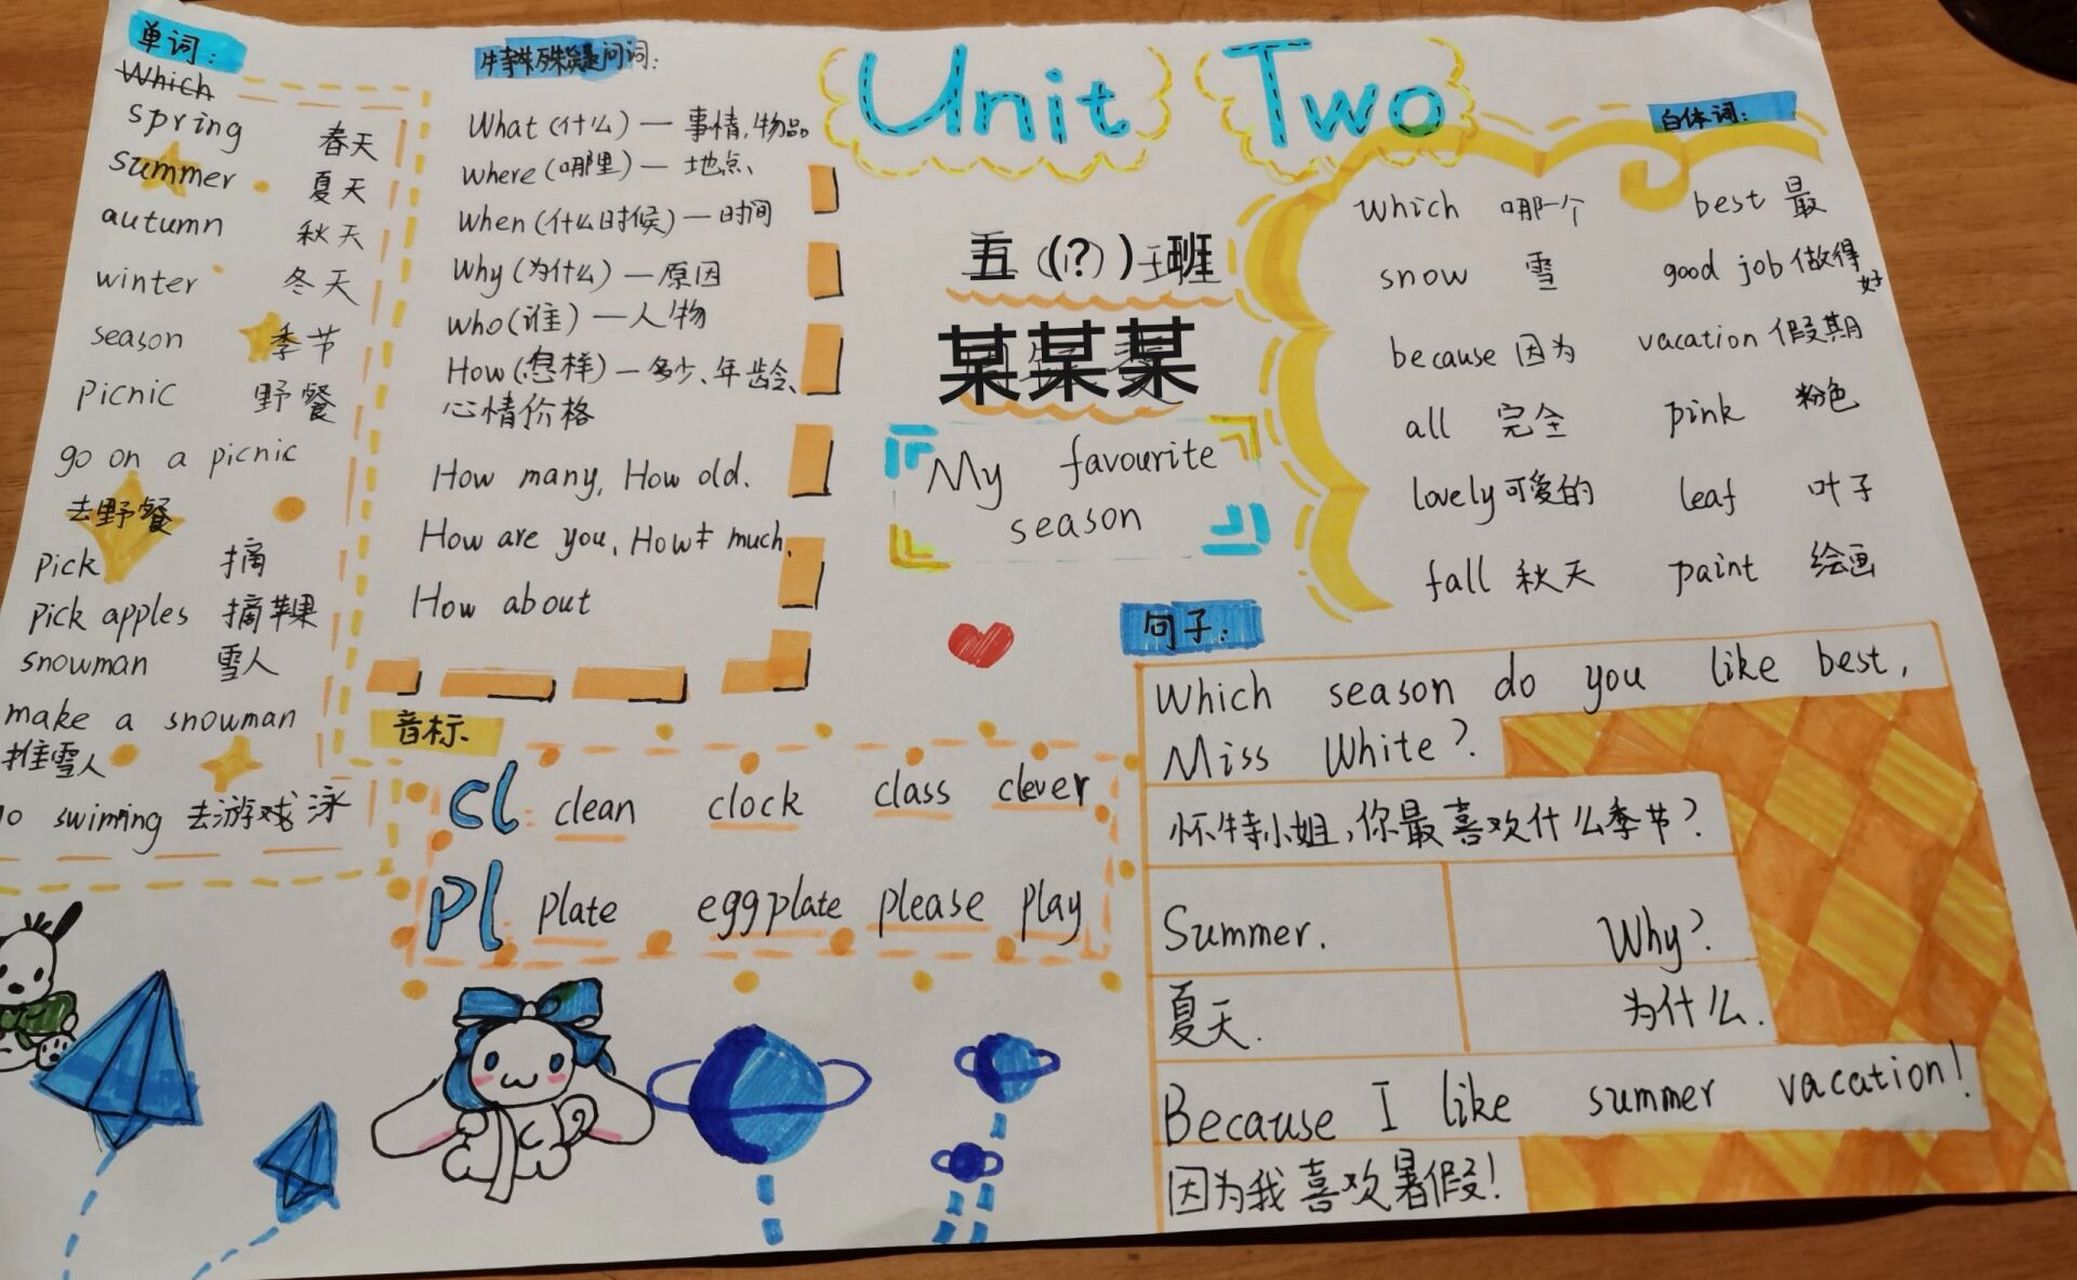 单词:
Which
spring 春天
summer 夏天
autumn 秋天
winter 冬天
season 季节
picnic 野餐
go on a picnic
去野餐
pick 摘
pick apples 摘苹果
snowman 雪人
make a snowman
堆雪人
swiming 去游戏泳
特殊疑问词:
What (什么) — 事情,物品
where (哪里) — 地点、
when (什么时候) — 时间
why (为什么) — 原因
who (谁) — 人物
How (怎样) — 多少、年龄、
心情价格
How many, How old.
How are you, How much.
How about
音标
cl clean clock class clever
pl plate eggplate please play
Unit Two
五 (?) 班
某某某
My favourite
season
白体词:
which 哪一个 best 最
snow 雪 good job 做得好
because 因为 vacation 假期
all 完全 pink 粉色
lovely 可爱的 leaf 叶子
fall 秋天 paint 绘画
句子:
Which season do you like best,
Miss White?
怀特小姐,你最喜欢什么季节?
Summer. Why?
夏天. 为什么.
Because I like summer vacation!
因为我喜欢暑假!